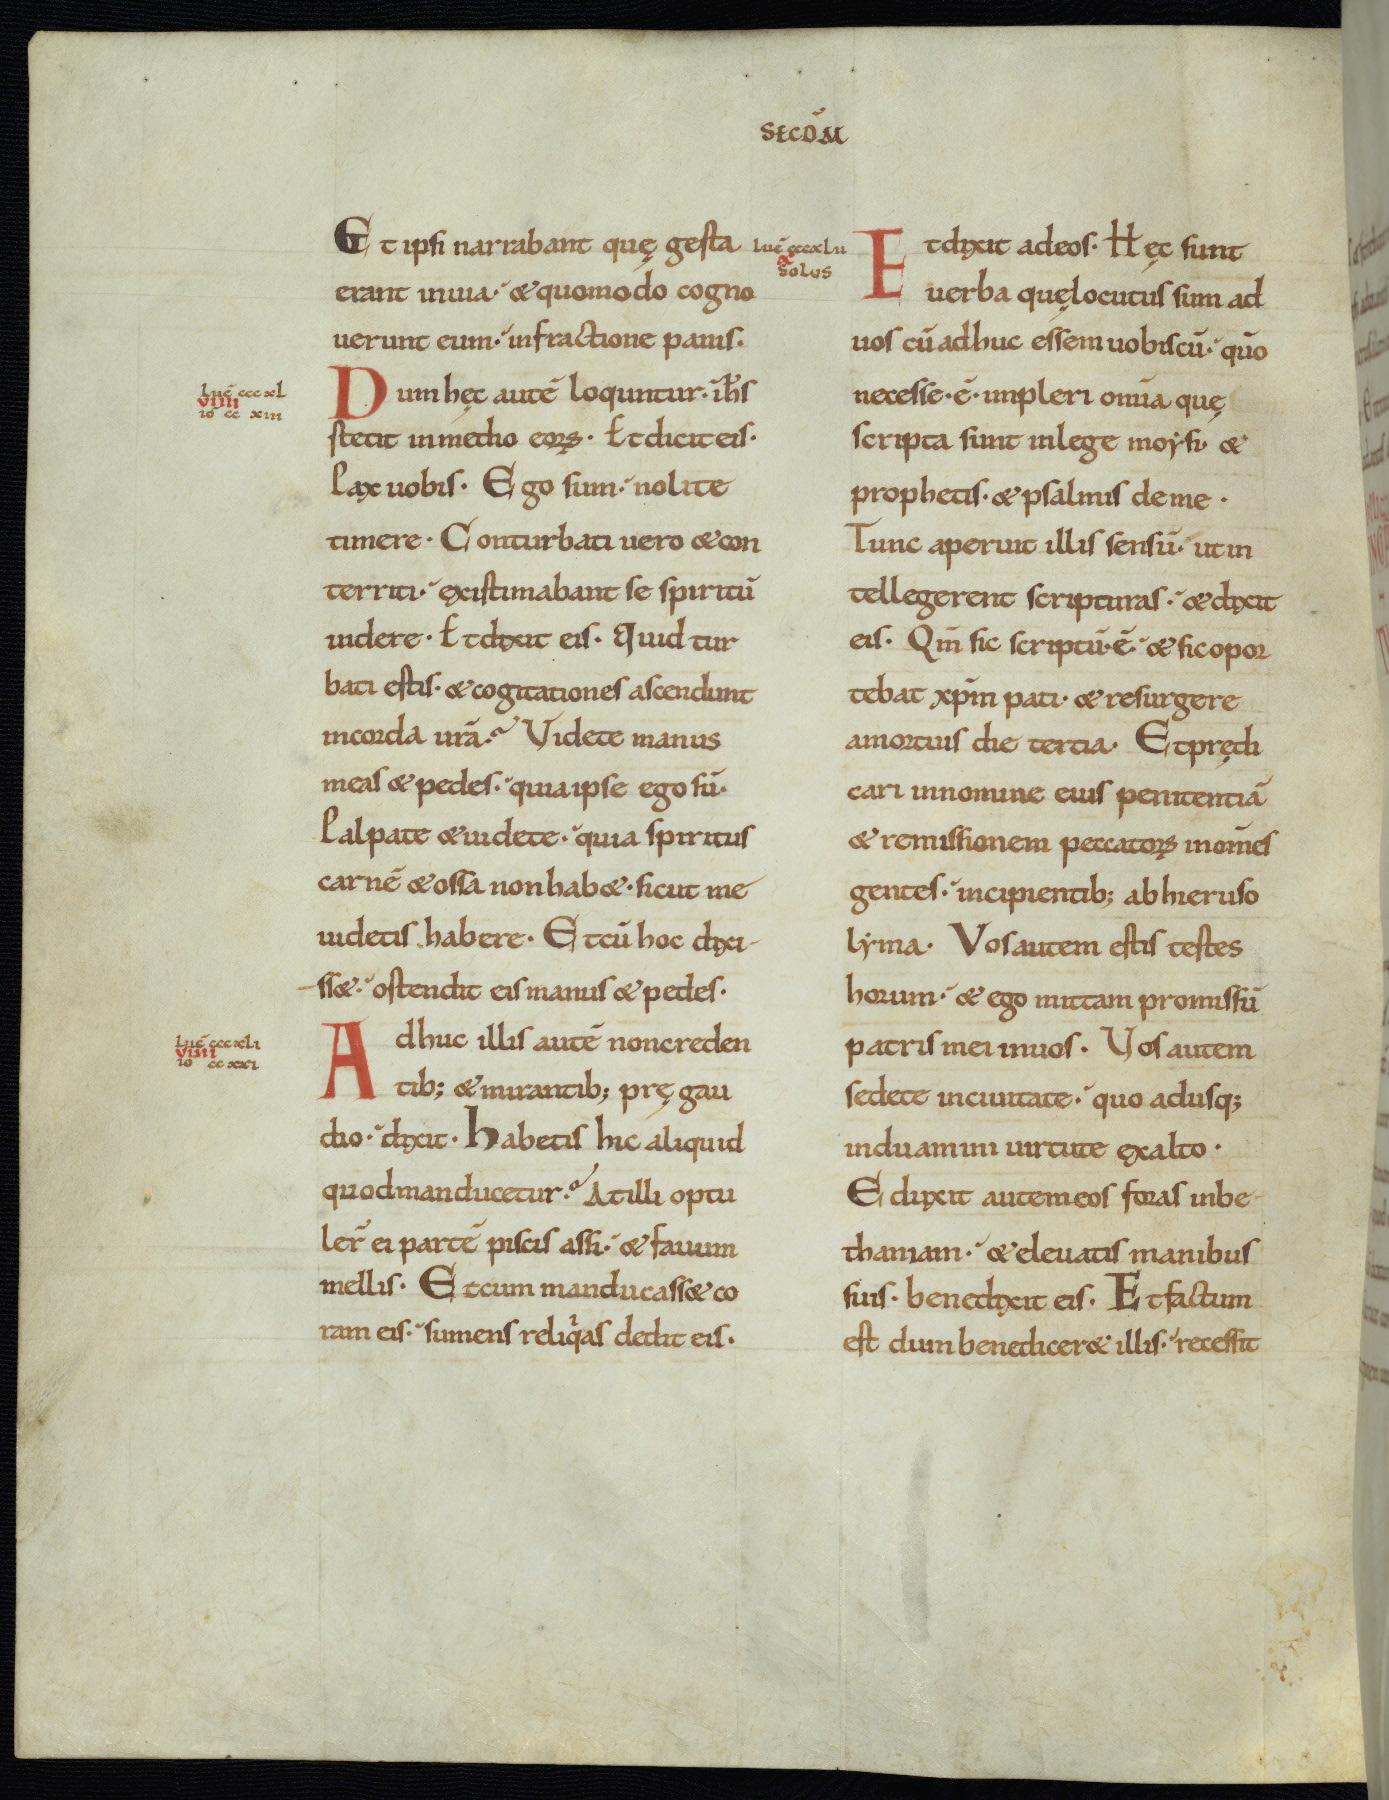 SECD̄M
Et ipsi narrabant quę gesta
erant inuia· &quomodo cogno
uerunt eum· infractione panis·
Luc̄ cccxl
VIIII
io cc xiii
Dum hęc autē loquntur· ih̄s
stetit inmedio eoꝝ· Et dicit eis·
Pax uobis· Ego sum· nolite
timere· Conturbati uero &con
territi· existimabant se spiritū
uidere· Et dixit eis· Quid tur
bati estis· &cogitationes ascendunt
incorda ur̄a· Videte manus
meas & pedes· quia ipse ego sū·
Palpate &uidete· quia spiritus
carnē &ossa non hab&· sicut me
uidetis habere· Et cū hoc dixi-
-ss&· ostendit eis manus & pedes·
Luc̄ cccxli
VIIII
io ccxxi
Adhuc illis autē noncreden
tib; &mirantib; prę gau
dio· dixit· Habetis hic aliquid
quod manducetur· At illi optu
ler̄ ei partē piscis assi· & fauum
mellis· Et cum manducass& co
ram eis· sumens reliqͥas dedit eis·
Luc̄ cccxlii
X
SOLUS
Et dixit adeos· Hęc sunt
uerba quę locutus sum ad
uos cū adhuc essem uobiscū· qūo
necesse·ē· impleri omīa quę
scripta sunt inlege moẏsi &
prophetis· &psalmis deme·
Tunc aperuit illis sensū· ut in
tellegerent scripturas· &dixit
eis· Qm̄ sic scriptū·ē· & sic opor
tebat xp̄m pati· & resurgere
amortuis die tertia· Et prędi
cari innomine eius penitentiā
& remissionem peccatoꝝ inom̄es
gentes· incipientib; ab hieruso
lẏma· Vos autem estis testes
horum· & ego mittam promissū
patris mei inuos· Vos autem
sedete inciuitate· quo adusq;
induamini uirtute exalto·
Eduxit autem eos foras inbe-
thaniam· &eleuatis manibus
suis· benedixit eis· Et factum
est dum benedicer& illis· recessit